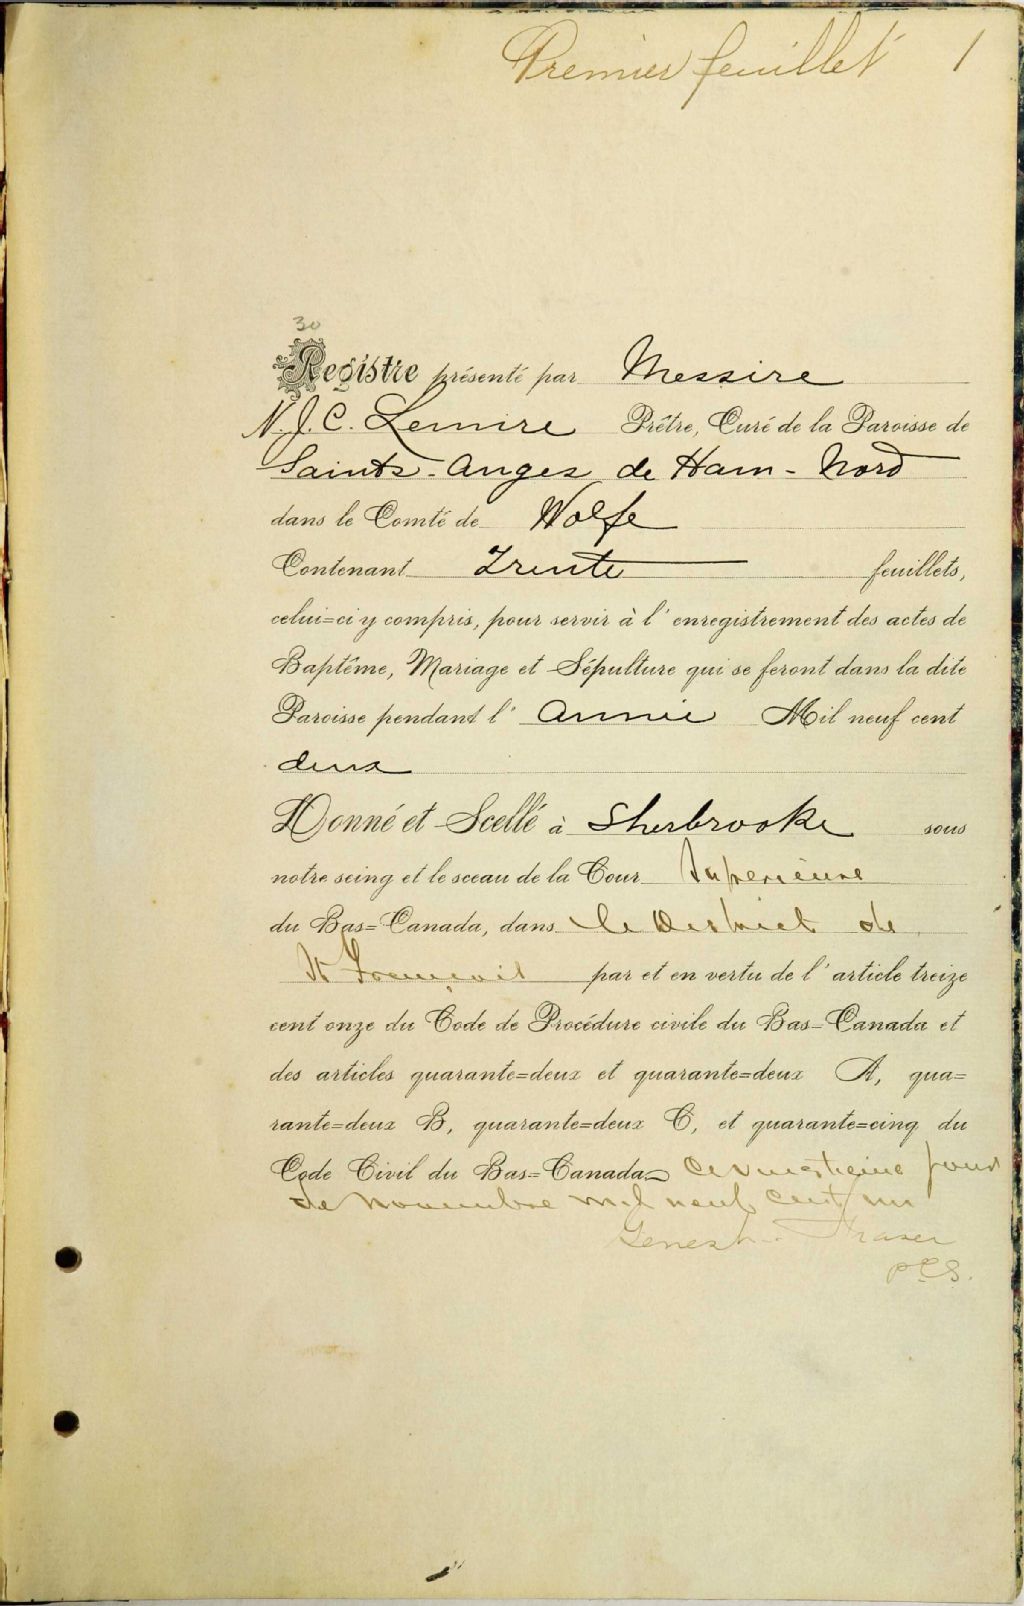 Premier feuillet 1
30
Registre présenté par Messire
N. J. C. Lemire Prêtre, Curé de la Paroisse de
Saints-Anges de Ham-Nord
dans le Comté de Wolfe
Contenant Trente feuillets,
celui=ci y compris, pour servir à l'enregistrement des actes de
Baptême, Mariage et Sépulture qui se feront dans la dite
Paroisse pendant l'année Mil neuf cent
deux
Donné et Scellé à Sherbrooke sous
notre seing et le sceau de la Cour Supérieure
du Bas=Canada, dans le District de
St François par et en vertu de l'article treize
cent onze du Code de Procédure civile du Bas=Canada et
des articles quarante=deux et quarante=deux A, qua=
rante=deux B, quarante=deux C, et quarante=cinq du
Code Civil du Bas=Canada ce jour
de novembre mil neuf cent un
Fraser
P.C.S.